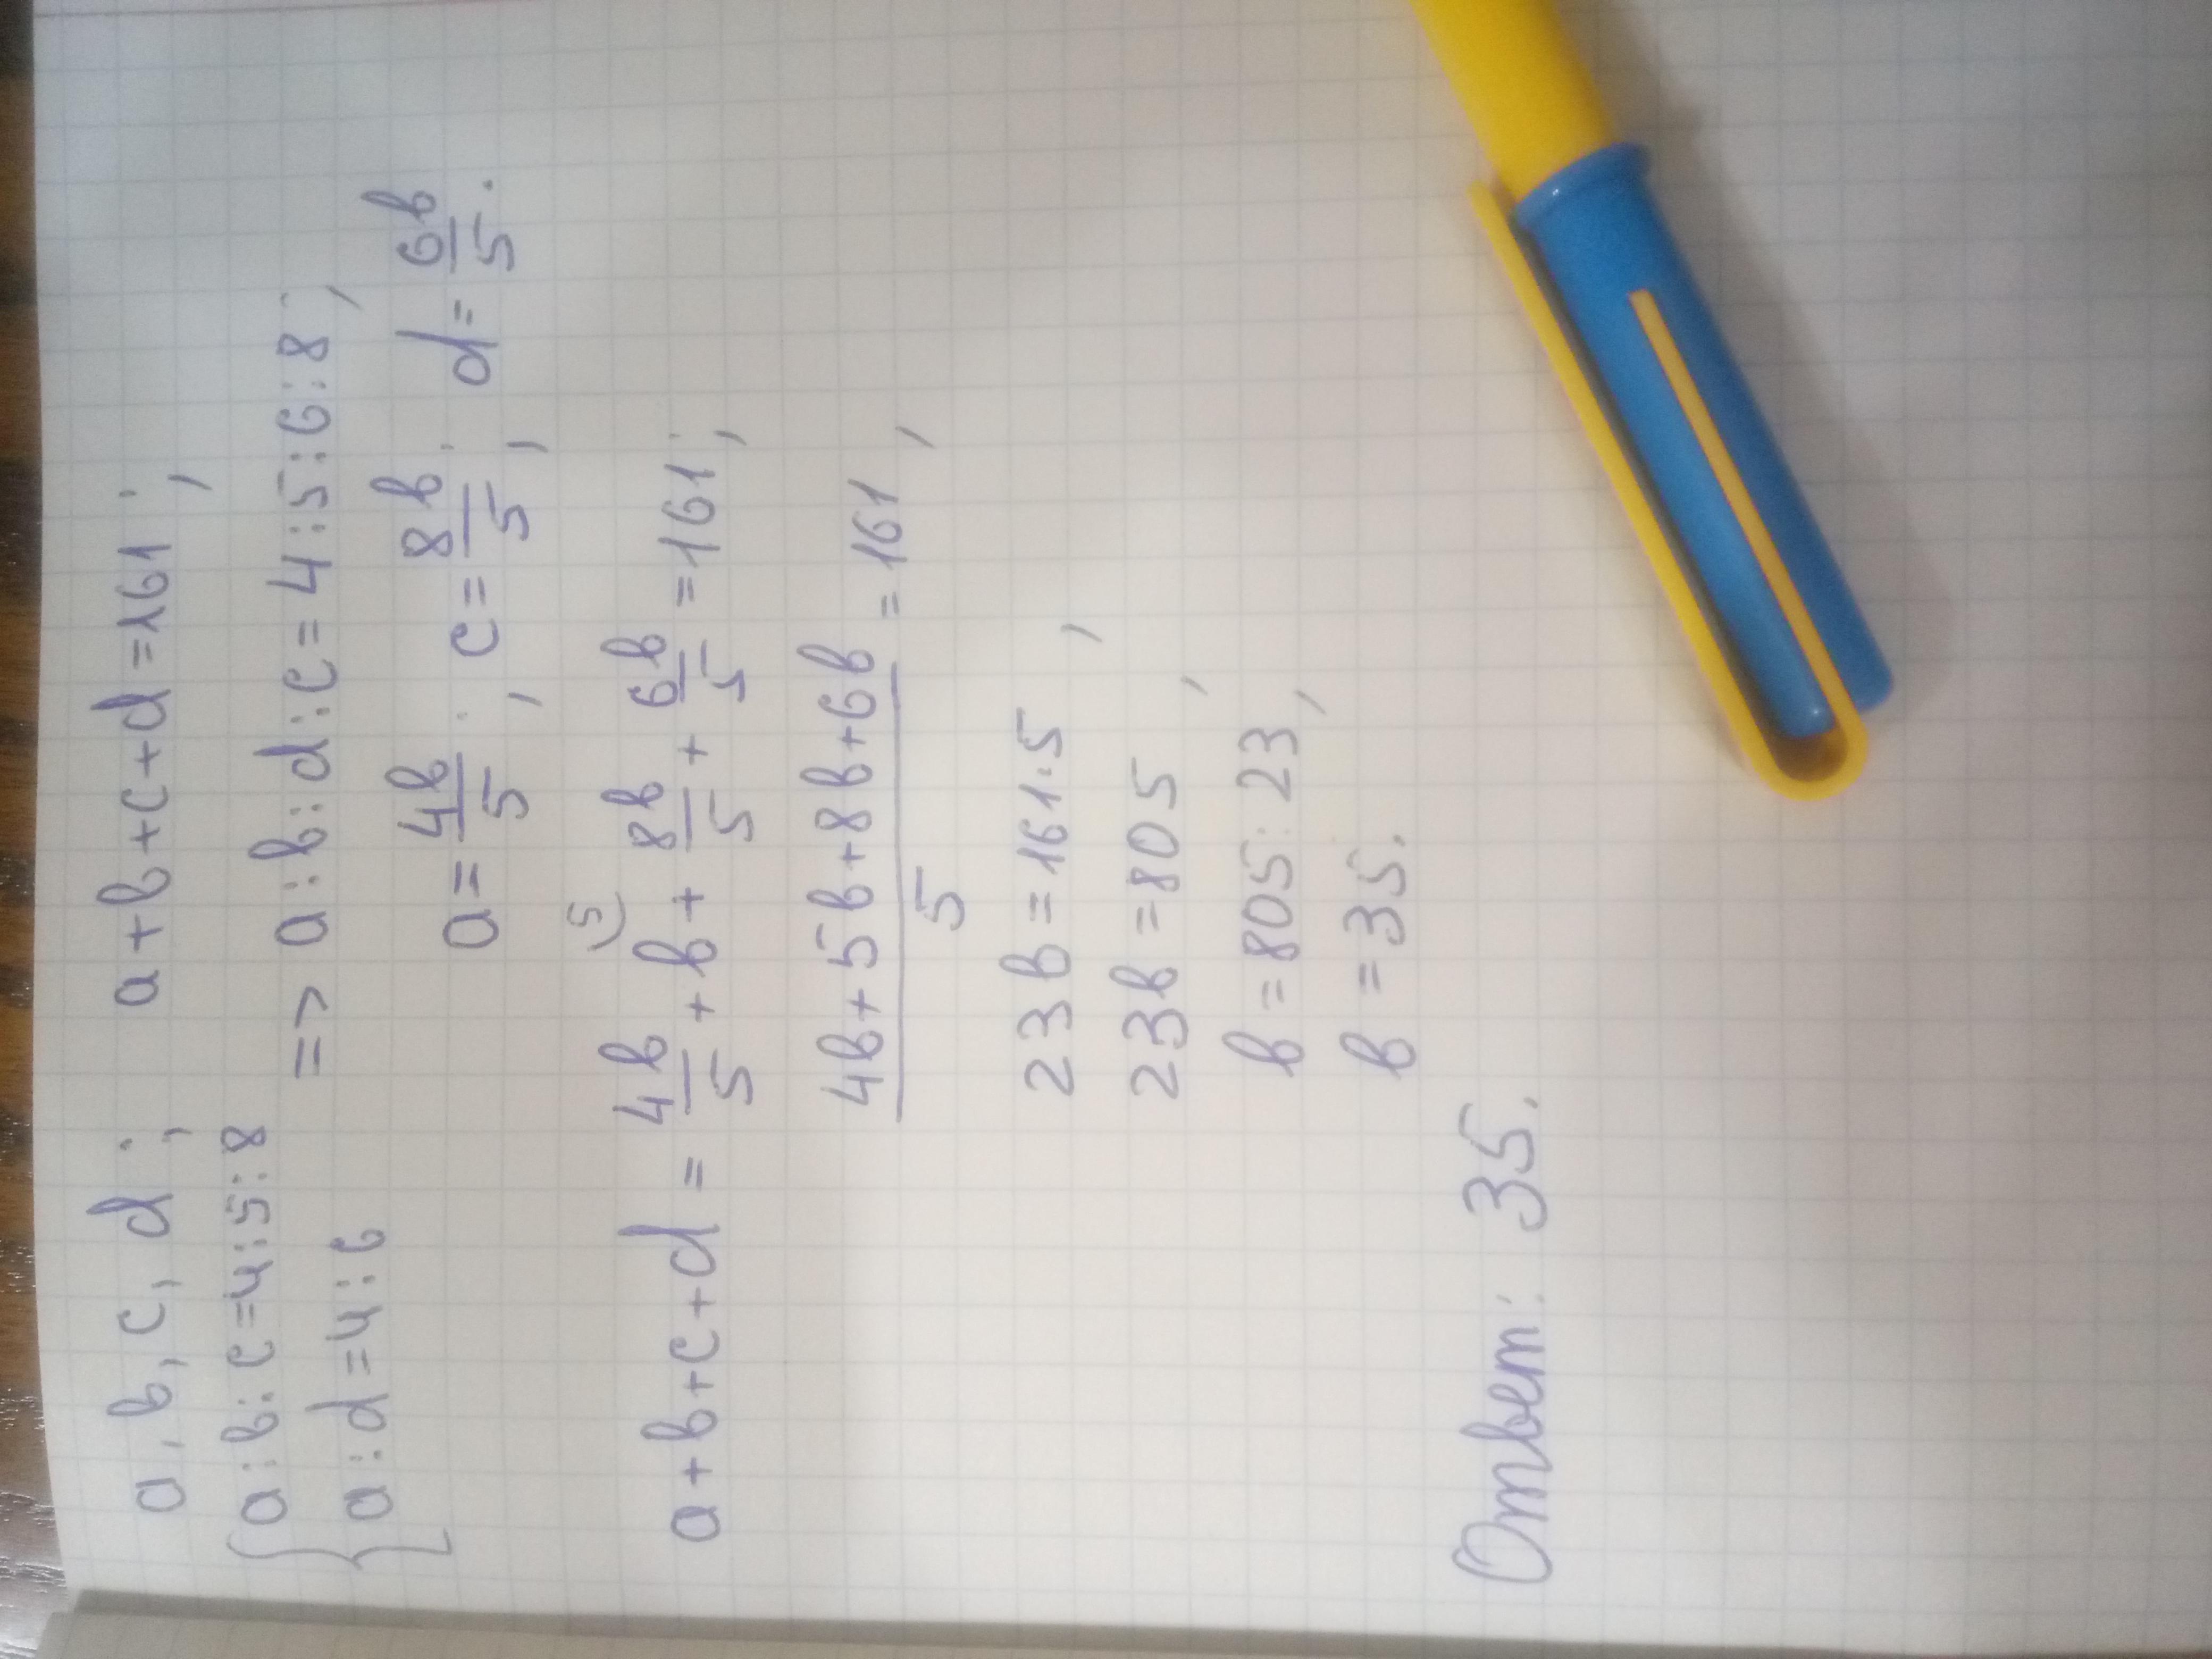 a, b, c, d; a+b+c+d=161;
{a:b:c=4:5:8
a:d=4:6 => a:b:d:c=4:5:6:8;
a=4b/5; c=8b/5; d=6b/5.
a+b+c+d = 4b/5 + b (5 + 8b/5 + 6b/5 = 161;
(4b+5b+8b+6b)/5 = 161,
23b=161·5,
23b=805,
b=805:23,
b=35.
Ответ: 35.